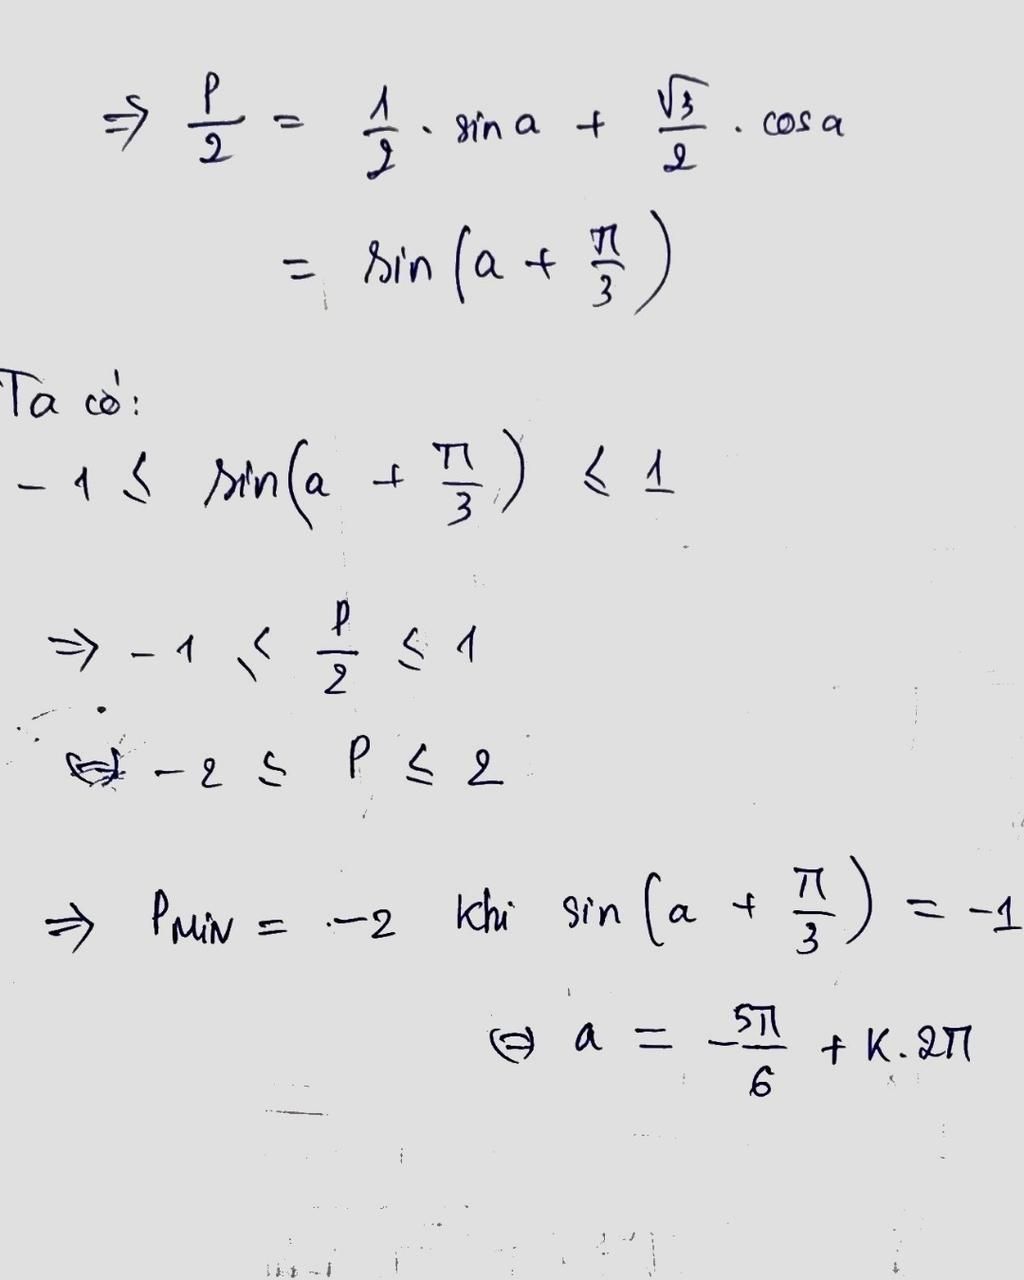 ⇒ P/2 = 1/2 . sin a + √3/2 . cos a
= sin (a + π/3)
Ta có:
-1 ≤ sin(a + π/3) ≤ 1
⇒ -1 ≤ P/2 ≤ 1
⇔ -2 ≤ P ≤ 2
⇒ PMIN = -2 khi sin (a + π/3) = -1
⇔ a = -5π/6 + K.2π